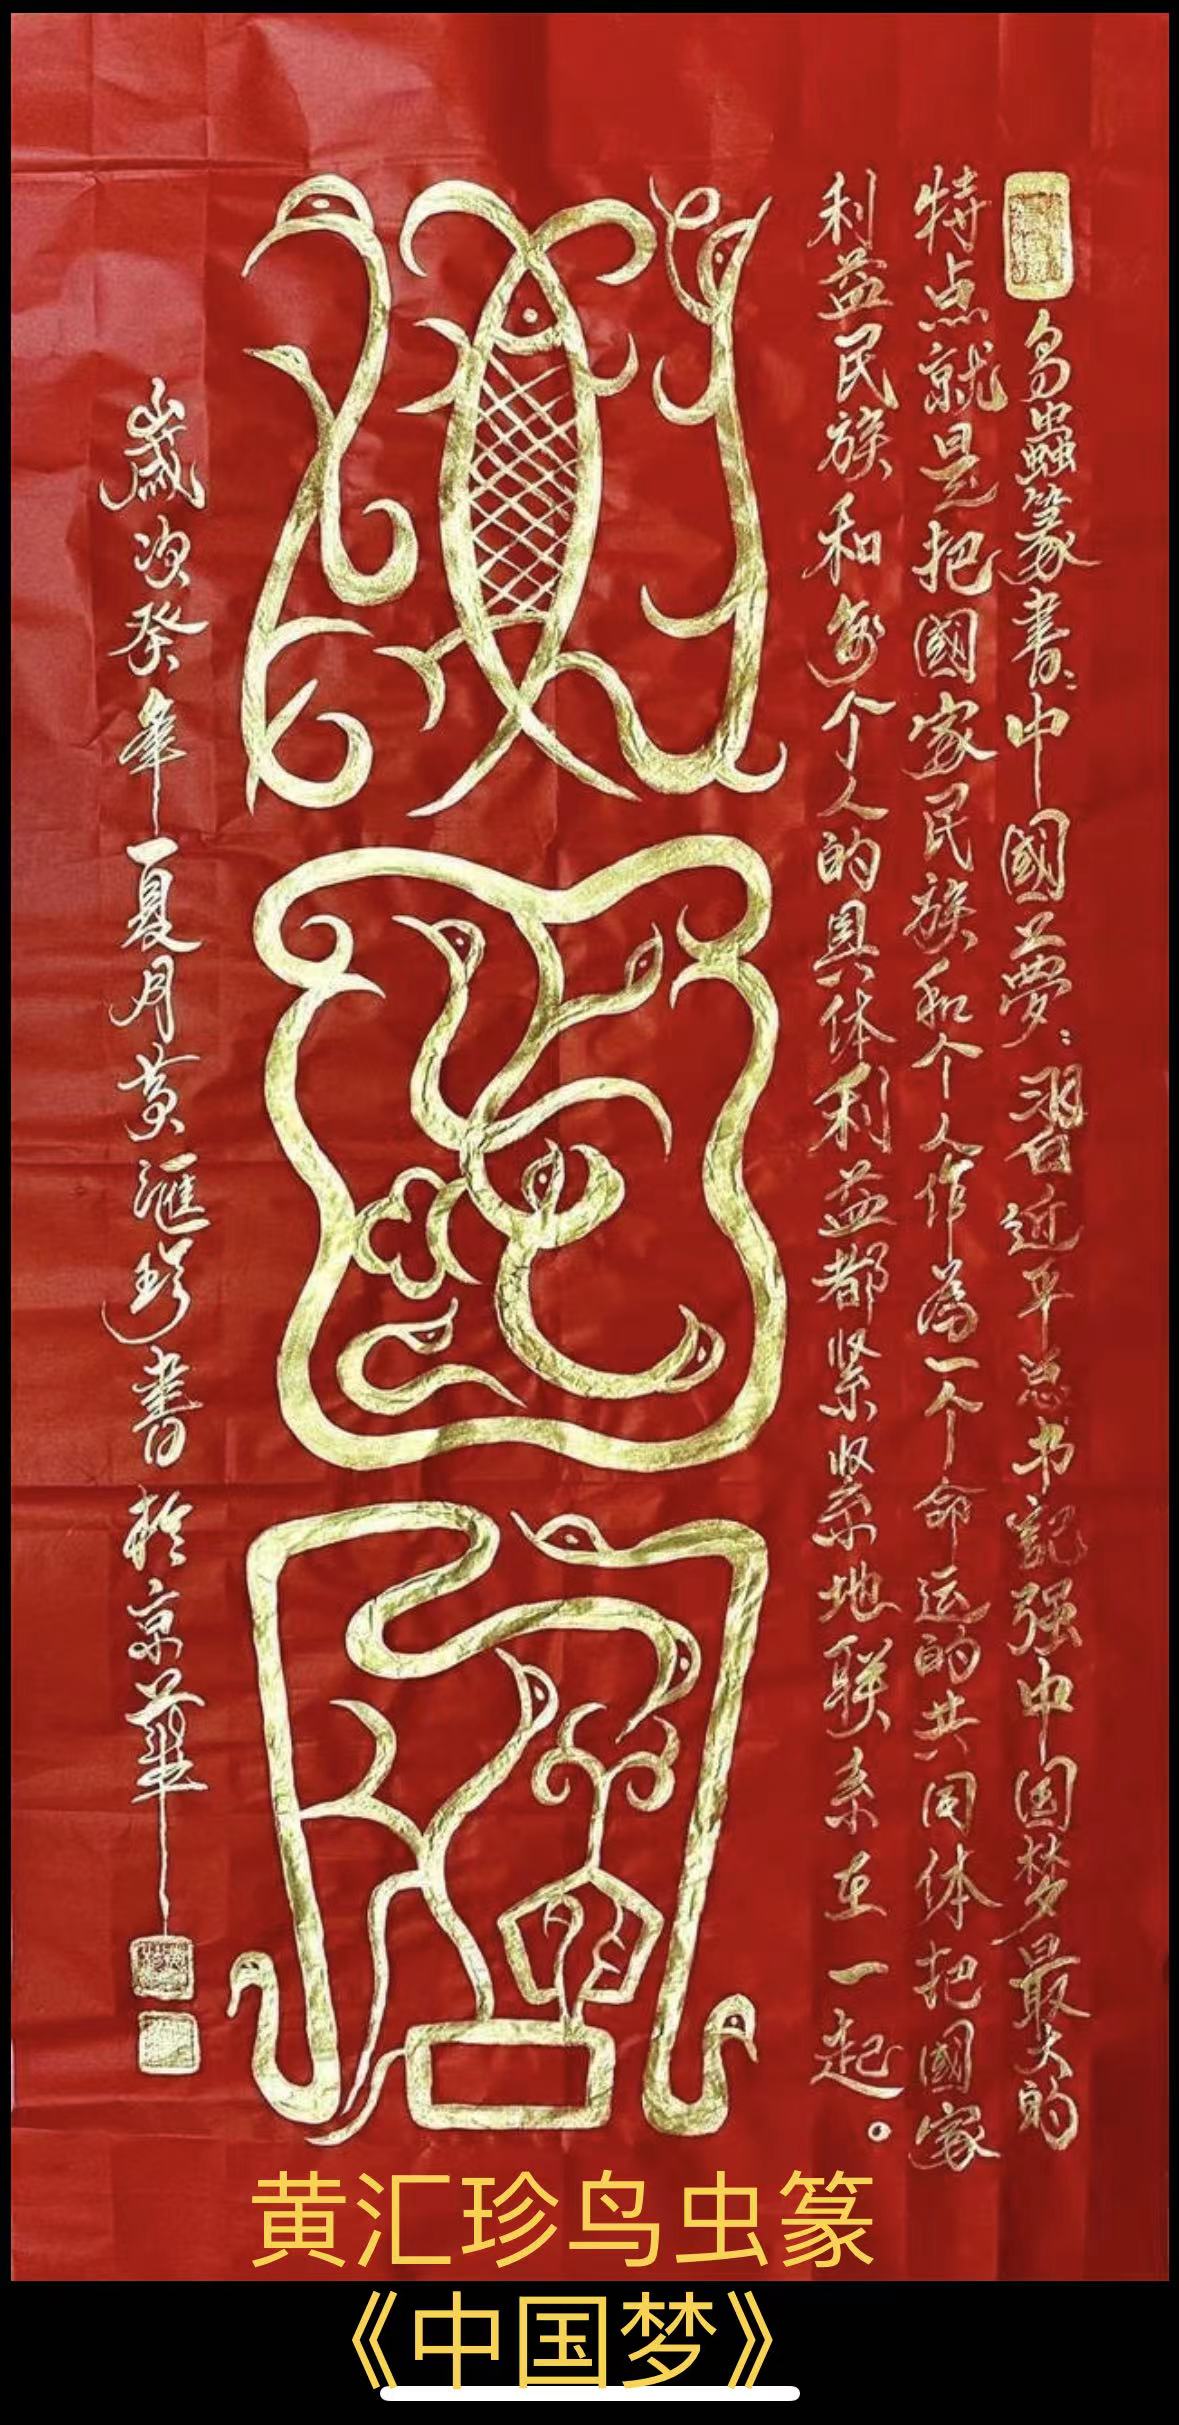 鸟蟲篆書:中國夢:習近平总书記强中国梦最大的
特点就是把國家民族和个人作為一个命运的共同体把國家
利益民族和每个人的具体利益都紧紧地联系在一起。
歲次癸年夏月黄滙珍書於京華
黄汇珍鸟虫篆
《中国梦》